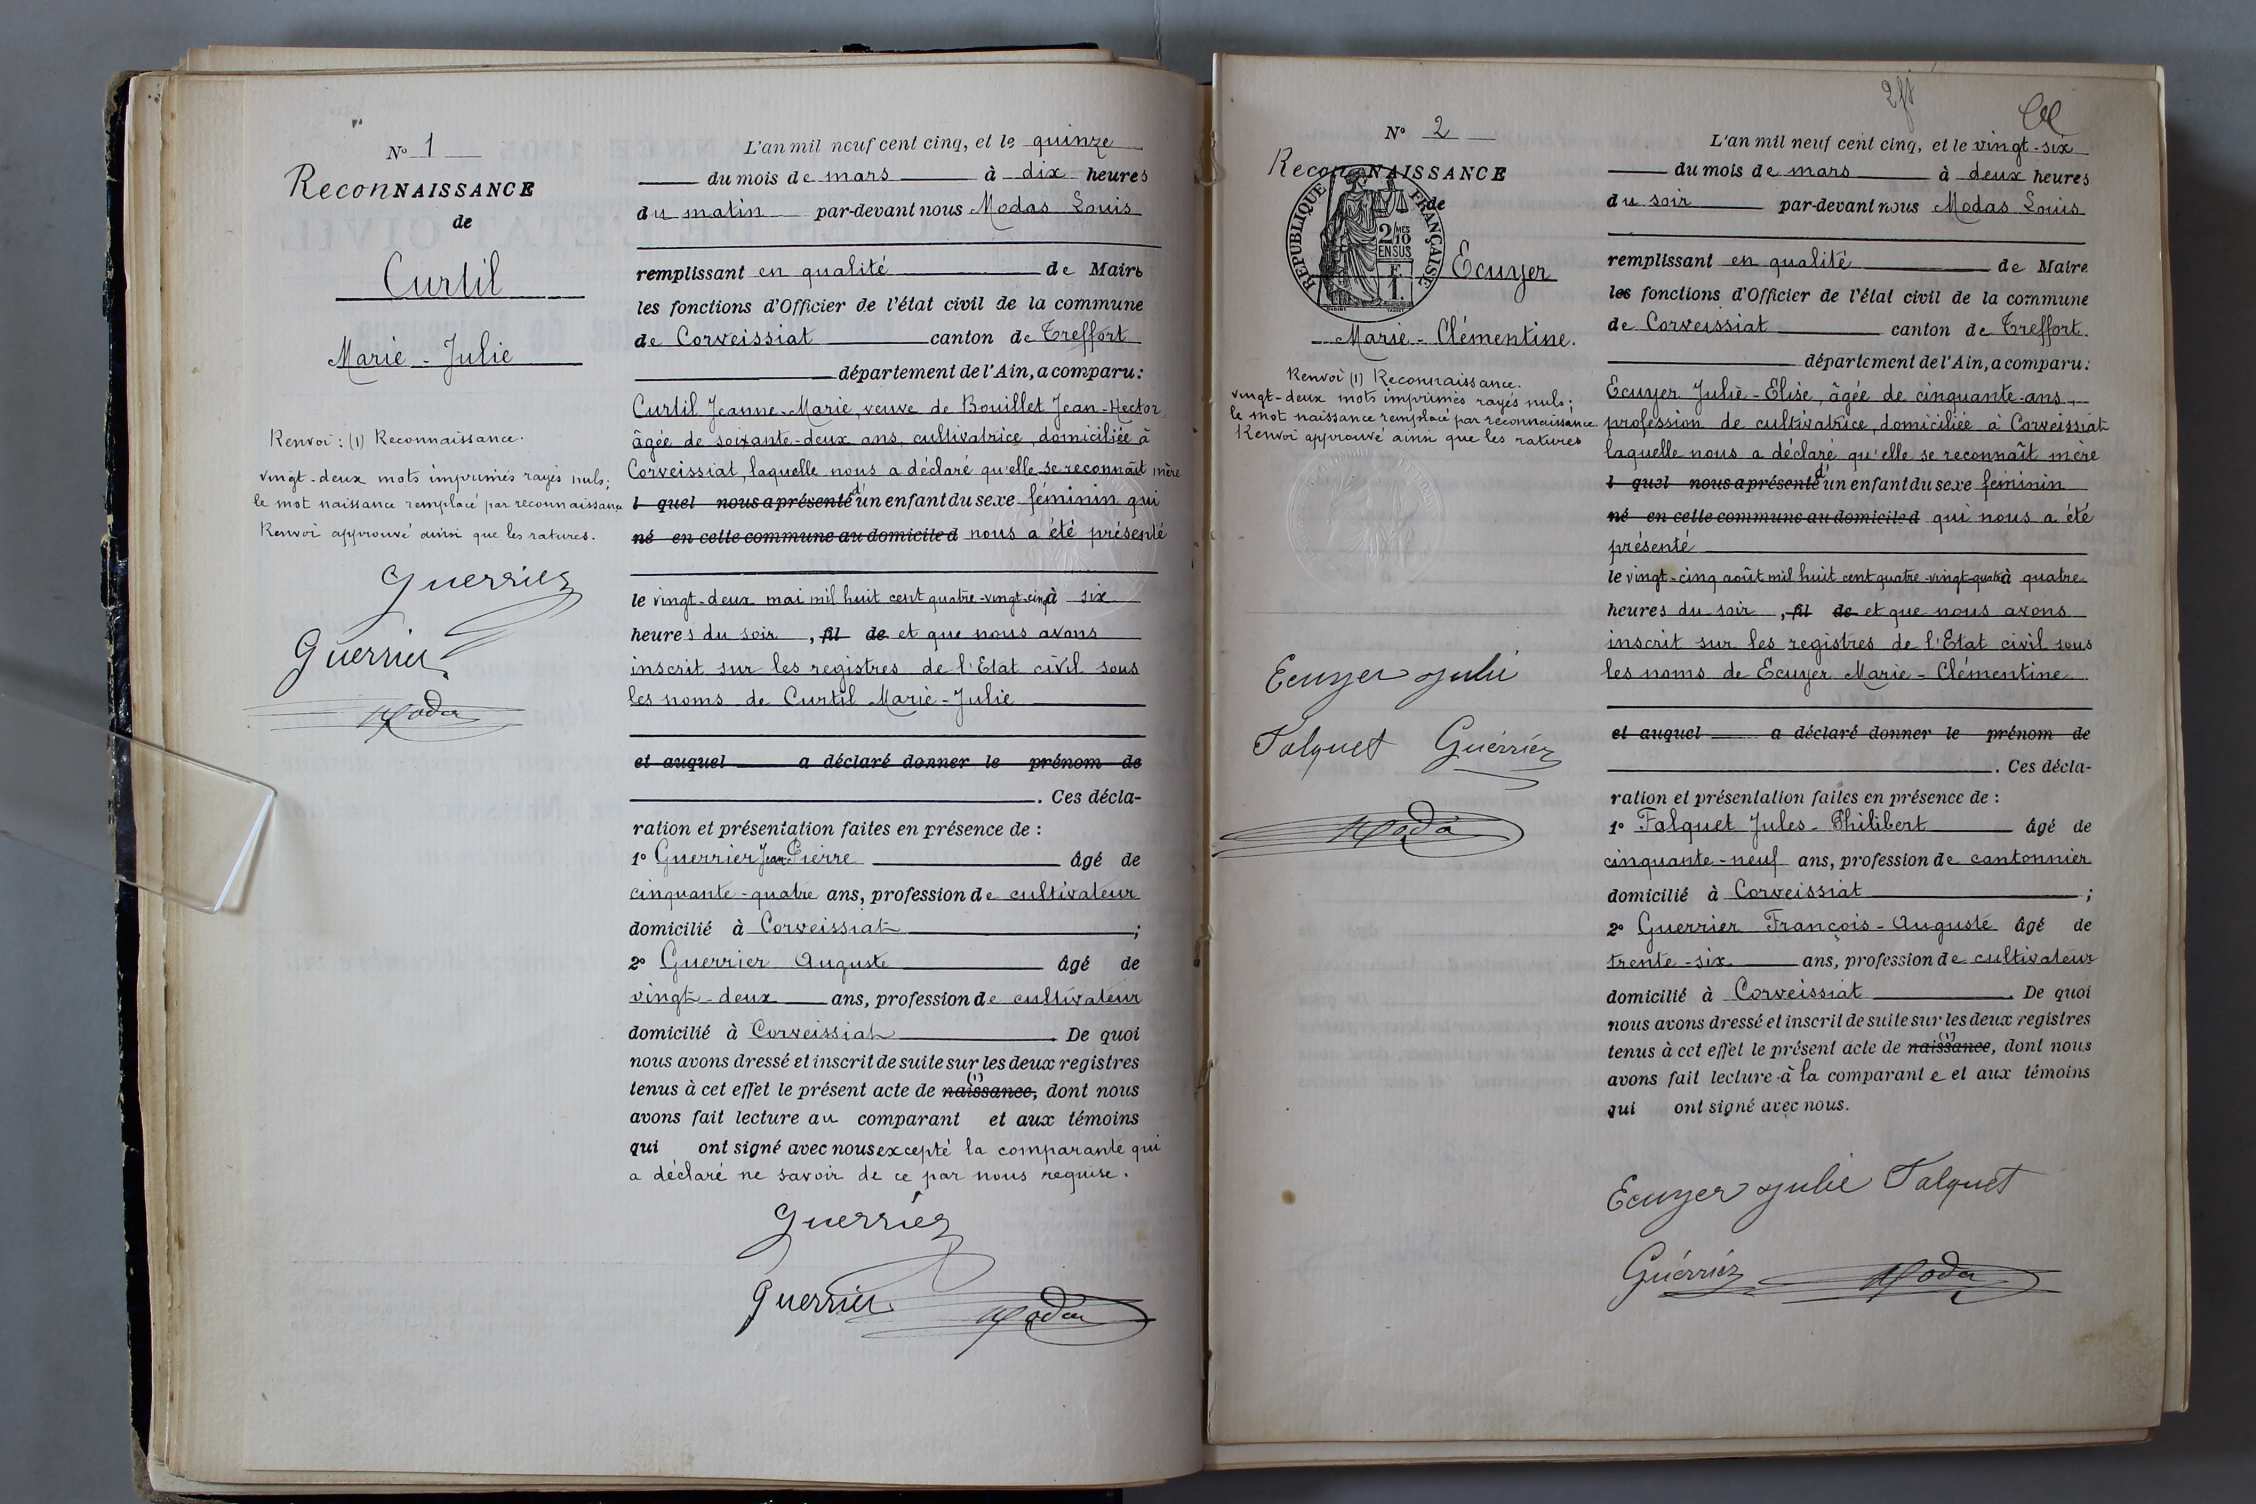 N° 1
ReconNAISSANCE
de
Curtil
Marie - Julie
Renvoi : (1) Reconnaissance.
vingt-deux mots imprimés rayés nuls ;
le mot naissance remplacé par reconnaissance
Renvoi approuvé ainsi que les ratures.
Guerrier
Guerrier
Moda
L'an mil neuf cent cinq, et le quinze
du mois de mars à dix heures
du matin par-devant nous Modas Louis
remplissant en qualité de Maire
les fonctions d'Officier de l'état civil de la commune
de Corveissiat canton de Treffort
département de l'Ain, a comparu :
Curtil Jeanne-Marie, veuve de Bouillet Jean-Hector
âgée de soixante-deux ans, cultivatrice, domiciliée à
Corveissiat, laquelle nous a déclaré qu'elle se reconnaît mère
l quel nous a présenté d'un enfant du sexe féminin qui
né en cette commune au domicile d nous a été présenté
le vingt-deux mai mil huit cent quatre-vingt-cinq à six
heures du soir, fil de et que nous avons
inscrit sur les registres de l'Etat civil sous
les noms de Curtil Marie-Julie
et auquel a déclaré donner le prénom de
. Ces décla-
ration et présentation faites en présence de :
1° Guerrier Jean Pierre âgé de
cinquante-quatre ans, profession de cultivateur
domicilié à Corveissiat ;
2° Guerrier Auguste âgé de
vingt-deux ans, profession de cultivateur
domicilié à Corveissiat . De quoi
nous avons dressé et inscrit de suite sur les deux registres
(1)
tenus à cet effet le présent acte de naissance, dont nous
avons fait lecture au comparant et aux témoins
qui ont signé avec nous excepté la comparante qui
a déclaré ne savoir de ce par nous requise.
Guerrier
Guerrier Moda
2ft
N° 2
ReconNAISSANCE
de
RÉPUBLIQUE FRANÇAISE
2/10 MES
EN SUS
F.
1.
Ecuyer
Marie - Clémentine.
Renvoi (1) Reconnaissance.
vingt-deux mots imprimés rayés nuls ;
le mot naissance remplacé par reconnaissance.
Renvoi approuvé ainsi que les ratures
Ecuyer Julie
Falquet Guérriér
Moda
L'an mil neuf cent cinq, et le vingt-six
du mois de mars à deux heures
du soir par-devant nous Modas Louis
remplissant en qualité de Maire
les fonctions d'Officier de l'état civil de la commune
de Corveissiat canton de Treffort.
département de l'Ain, a comparu :
Ecuyer Julie-Elise, âgée de cinquante-ans,
profession de cultivatrice, domiciliée à Corveissiat
laquelle nous a déclaré qu'elle se reconnaît mère
l quel nous a présenté d'un enfant du sexe féminin
né en cette commune au domicile d qui nous a été
présenté
le vingt-cinq août mil huit cent quatre-vingt-quatre à quatre
heures du soir, fil de et que nous avons
inscrit sur les registres de l'Etat civil sous
les noms de Ecuyer Marie-Clémentine
et auquel a déclaré donner le prénom de
. Ces décla-
ration et présentation faites en présence de :
1° Falquet Jules-Philibert âgé de
cinquante-neuf ans, profession de cantonnier
domicilié à Corveissiat ;
2° Guerrier François-Auguste âgé de
trente-six ans, profession de cultivateur
domicilié à Corveissiat . De quoi
nous avons dressé et inscrit de suite sur les deux registres
(1)
tenus à cet effet le présent acte de naissance, dont nous
avons fait lecture à la comparant e et aux témoins
qui ont signé avec nous.
Ecuyer Julie Falquet
Guérriér Moda